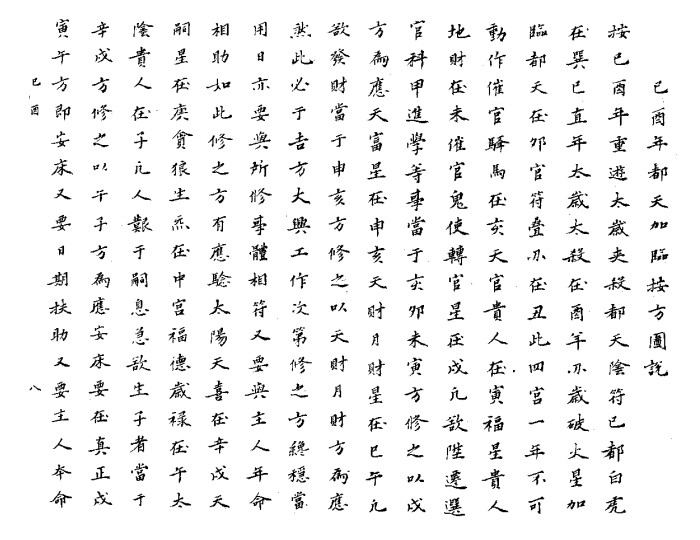 己酉年都天加臨按方圖說
按己酉年重遊太歲夾殺都天陰符己都白虎
在巽己直年太歲太殺在酉年亦歲破火星加
臨都天在卯官符疊亦在丑此四宮一年不可
動作催官驛馬在亥天官貴人在寅福星貴人
地財在未催官鬼使轉官星在戌凡欲陞遷選
官科甲進學等事當于亥卯未寅方修之以戌
方為應天富星在申亥天財月財星在巳午凡
欲發財當于申亥方修之以天財月財方為應
然此必于吉方大興工作次第修之方總穩當
用日亦要與所修事體相符又要與主人年命
相助如此修之方有應驗太陽天喜在辛戌天
嗣星在庚貪狼生炁在中宮福德歲祿在午太
陰貴人在子凡人艱于嗣息急欲生子者當于
辛戌方修之以午子方為應安床要在真正戌
寅午方即安床又要日期扶助又要主人本命
己酉
八